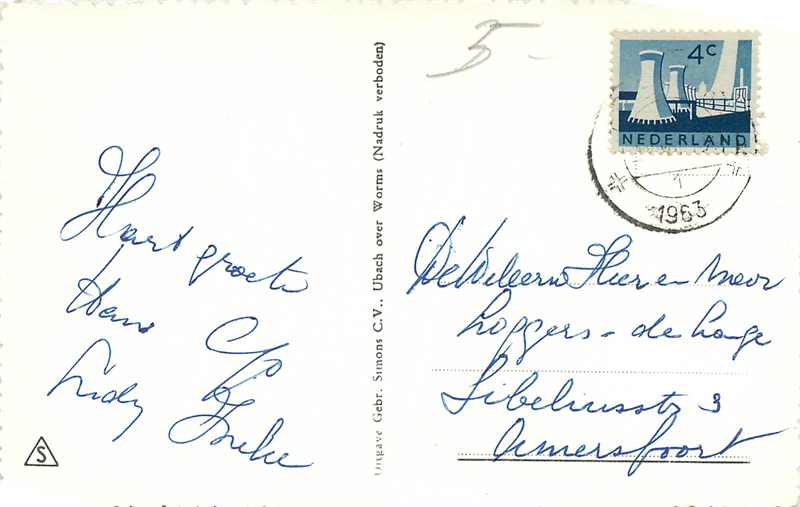 5-
4c
NEDERLAND
1
1963
Hart groeten
Hans
Lidy
Uitgave Gebr. Simons C.V., Ubach over Worms (Nadruk verboden)
De Weleerw Heer en Mevr
Loggers - de Lange
Sibeliusstr 3
Amersfoort
S